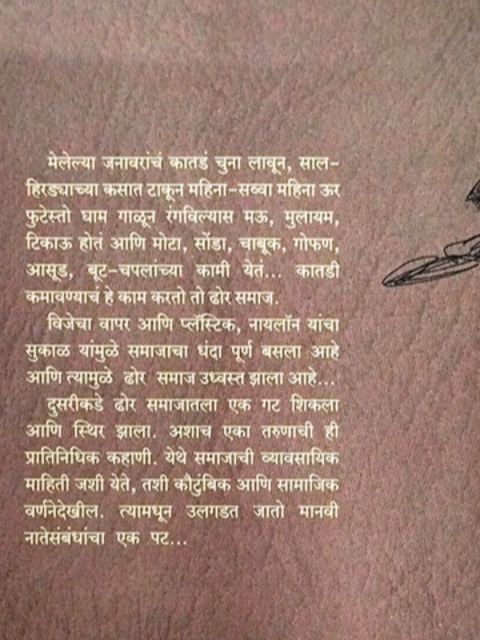 मेलेल्या जनावरांचं कातडं चुना लावून, साल-
हिरड्याच्या कसात टाकून महिना-सव्वा महिना ऊर
फुटेस्तो घाम गाळून रंगविल्यास मऊ, मुलायम,
टिकाऊ होतं आणि मोटा, सोंडा, चाबूक, गोफण,
आसूड, बूट-चपलांच्या कामी येतं... कातडी
कमावण्याचं हे काम करतो तो ढोर समाज.
विजेचा वापर आणि प्लॅस्टिक, नायलॉन यांचा
सुकाळ यांमुळे समाजाचा धंदा पूर्ण बसला आहे
आणि त्यामुळे ढोर समाज उध्वस्त झाला आहे...
दुसरीकडे ढोर समाजातला एक गट शिकला
आणि स्थिर झाला. अशाच एका तरुणाची ही
प्रातिनिधिक कहाणी. येथे समाजाची व्यावसायिक
माहिती जशी येते, तशी कौटुंबिक आणि सामाजिक
वर्णनेदेखील. त्यामधून उलगडत जातो मानवी
नातेसंबंधांचा एक पट...